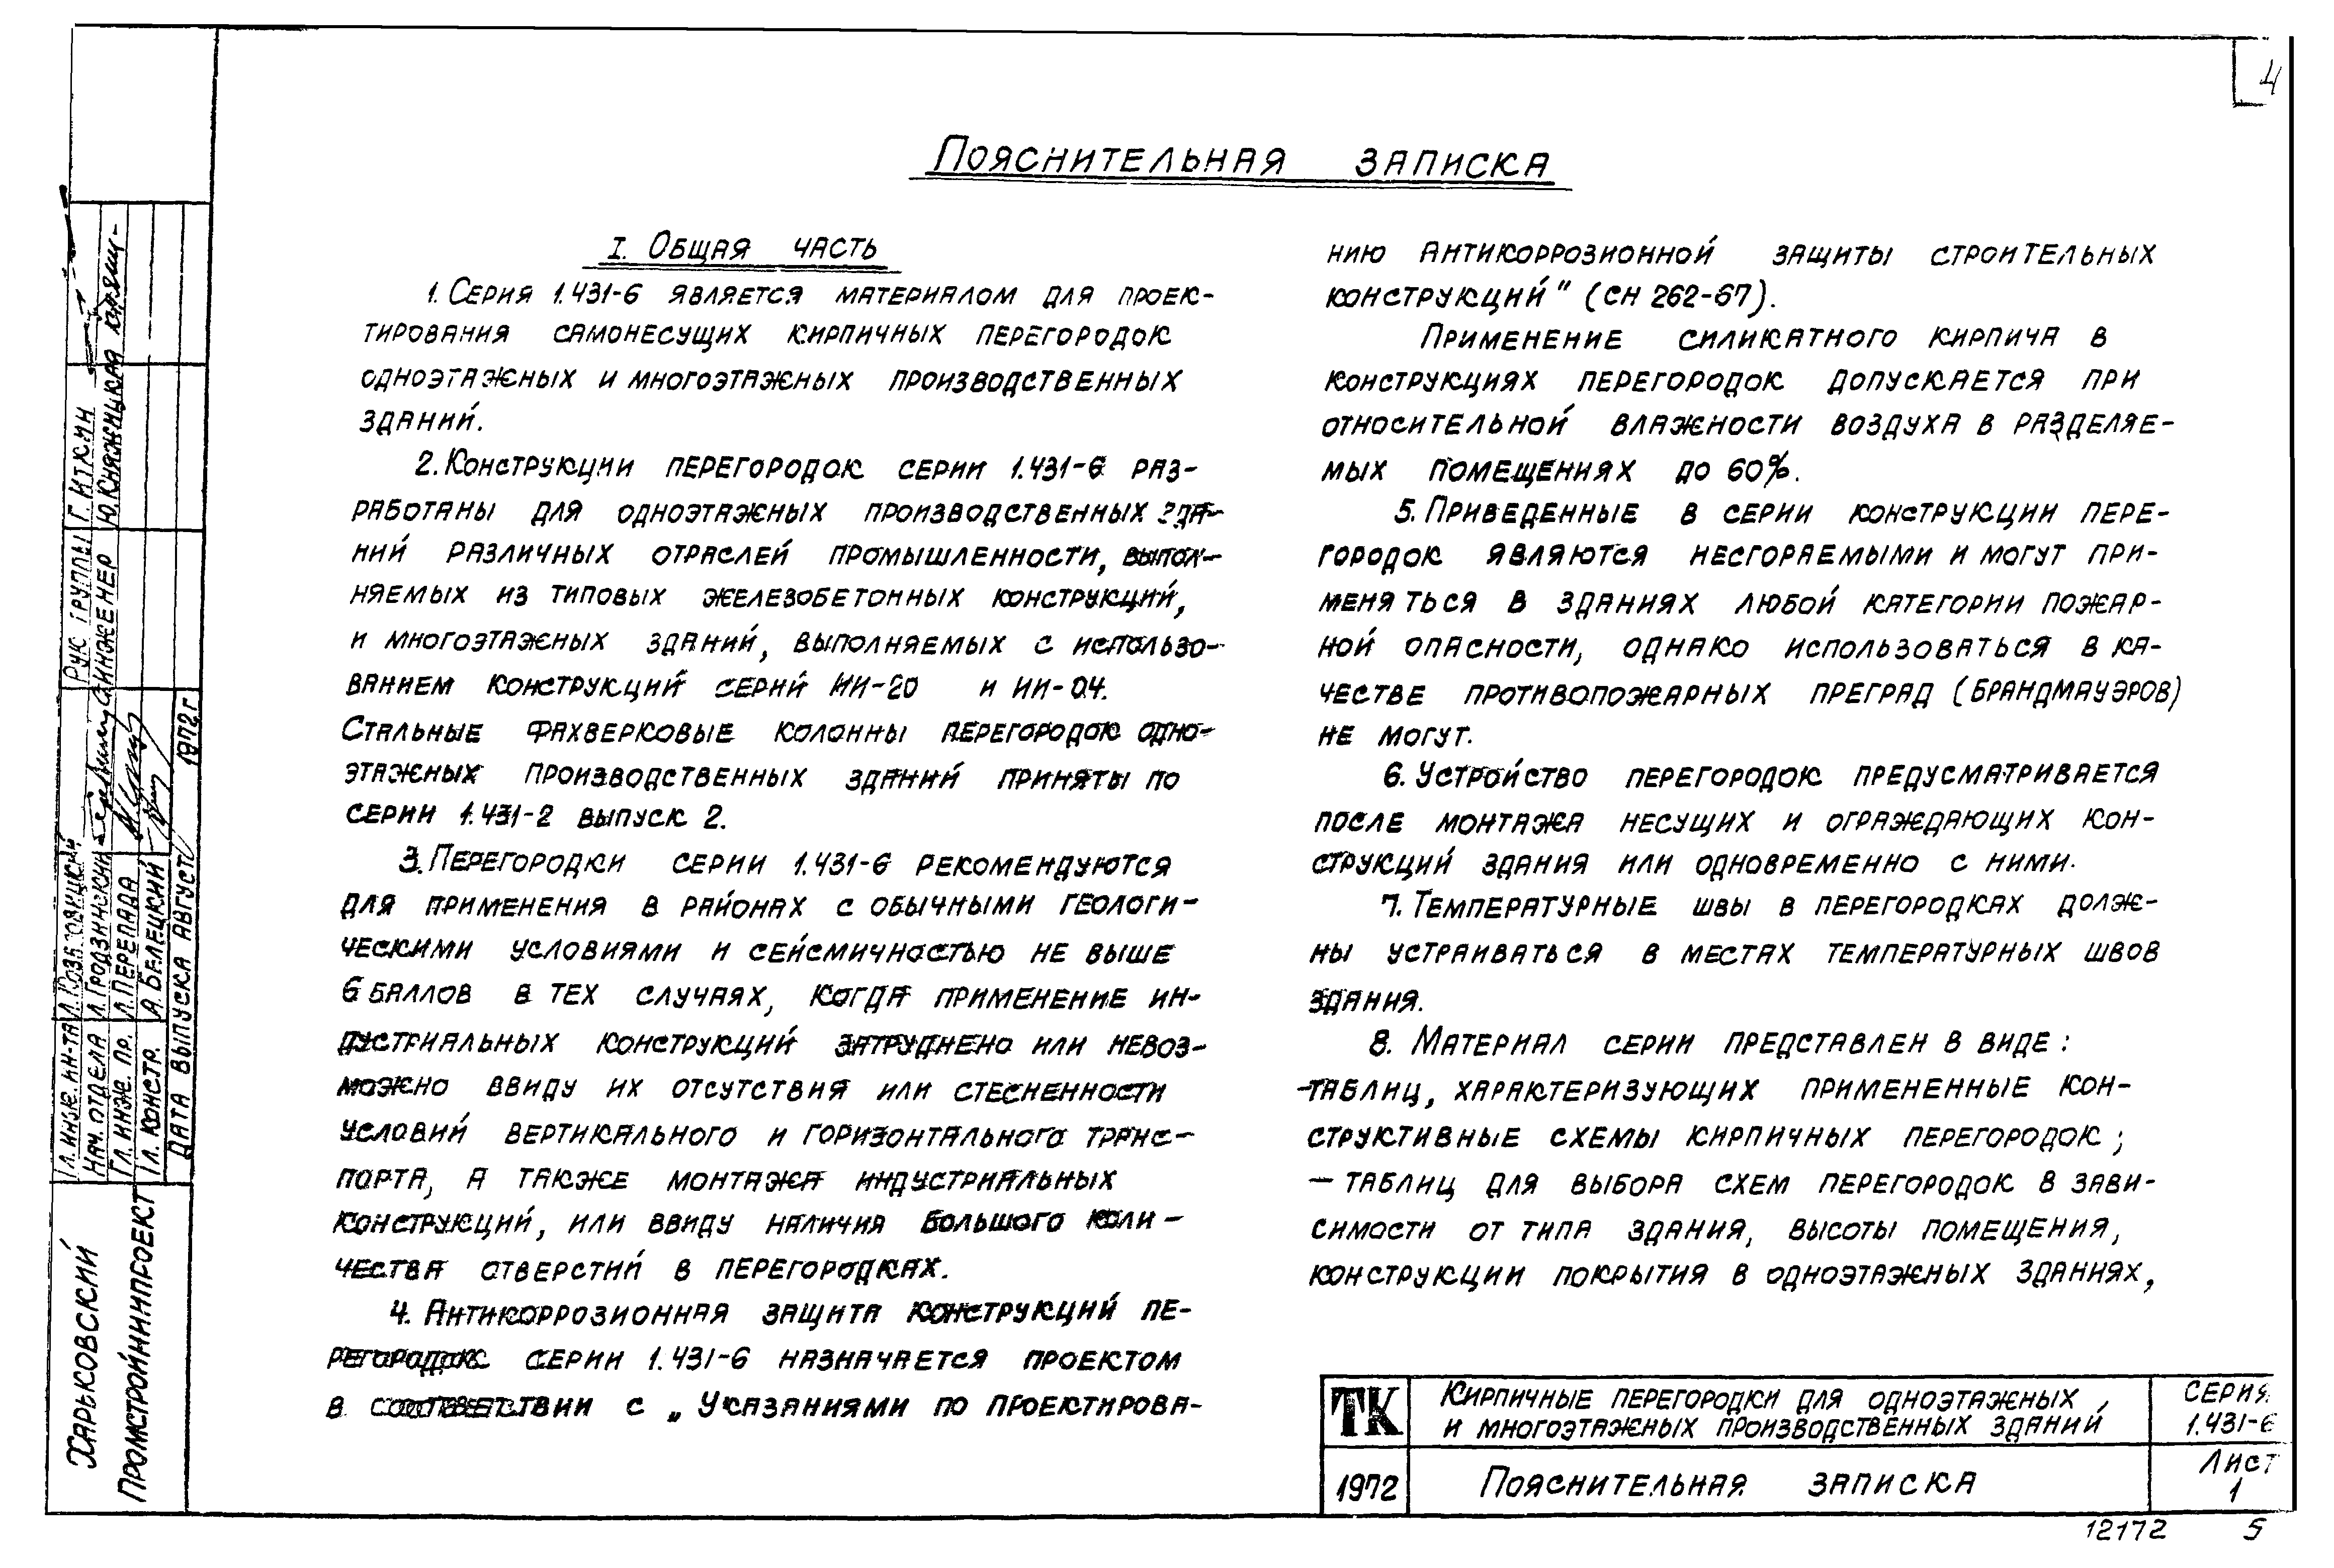 4
Пояснительная записка
I. Общая часть
1. Серия 1.431-6 является материалом для проек-
тирования самонесущих кирпичных перегородок
одноэтажных и многоэтажных производственных
зданий.
2. Конструкции перегородок серии 1.431-6 раз-
работаны для одноэтажных производственных зда-
ний различных отраслей промышленности, выпол-
няемых из типовых железобетонных конструкций,
и многоэтажных зданий, выполняемых с использо-
ванием конструкций серий ИИ-20 и ИИ-04.
Стальные фахверковые колонны перегородок одно-
этажных производственных зданий приняты по
серии 1.431-2 выпуск 2.
3. Перегородки серии 1.431-6 рекомендуются
для применения в районах с обычными геологи-
ческими условиями и сейсмичностью не выше
6 баллов в тех случаях, когда применение ин-
дустриальных конструкций затруднено или невоз-
можно ввиду их отсутствия или стесненности
условий вертикального и горизонтального транс-
порта, а также монтажа индустриальных
конструкций, или ввиду наличия большого коли-
чества отверстий в перегородках.
4. Антикоррозионная защита конструкций пе-
регородок серии 1.431-6 назначается проектом
в соответствии с „Указаниями по проектирова-
нию антикоррозионной защиты строительных
конструкций" (СН 262-67).
Применение силикатного кирпича в
конструкциях перегородок допускается при
относительной влажности воздуха в разделяе-
мых помещениях до 60%.
5. Приведенные в серии конструкции пере-
городок являются несгораемыми и могут при-
меняться в зданиях любой категории пожар-
ной опасности, однако использоваться в ка-
честве противопожарных преград (брандмауэров)
не могут.
6. Устройство перегородок предусматривается
после монтажа несущих и ограждающих кон-
струкций здания или одновременно с ними.
7. Температурные швы в перегородках долж-
ны устраиваться в местах температурных швов
здания.
8. Материал серии представлен в виде:
-таблиц, характеризующих примененные кон-
структивные схемы кирпичных перегородок;
- таблиц для выбора схем перегородок в зави-
симости от типа здания, высоты помещения,
конструкции покрытия в одноэтажных зданиях,
ТК
Кирпичные перегородки для одноэтажных
и многоэтажных производственных зданий
Серия
1.431-6
1972
Пояснительная записка
Лист
1
12172 5
Харьковский
Промстройниипроект
Гл. инж. ин-та
Нач. отдела Л. Гродзинский
Гл. инж. пр. Л. Перепада
Гл. констр. А. Белецкий
Дата выпуска август 1972 г.
Рук группы Г. Иткин
инженер Ю. Княжицкая